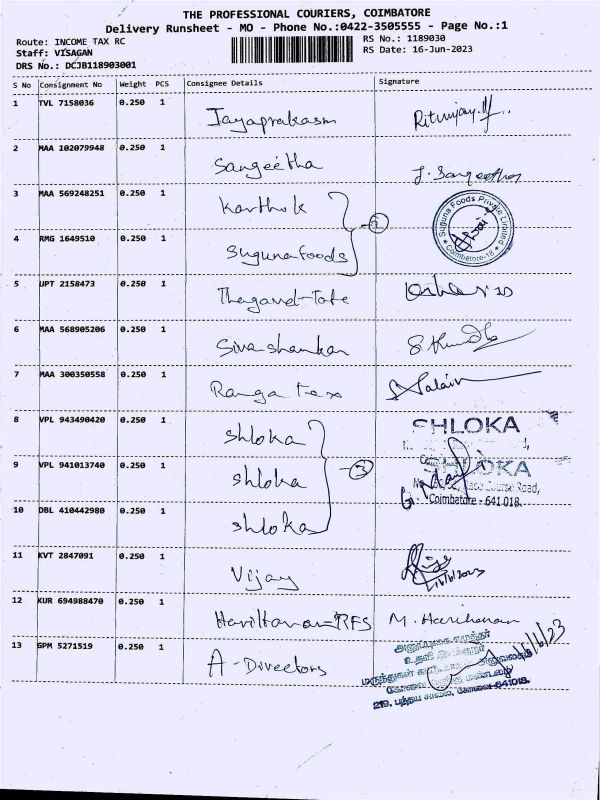 THE PROFESSIONAL COURIERS, COIMBATORE
Delivery Runsheet - MO - Phone No.:0422-3505555 - Page No.:1
Route: INCOME TAX RC
RS No.: 1189030
Staff: VISAGAN
RS Date: 16-Jun-2023
DRS No.: DCJB118903001
S No Consignment No Weight PCS Consignee Details Signature
1 TVL 7158036 0.250 1 Jayaprakasm
2 MAA 102079948 0.250 1 Sangeetha J. Sangeetha
3 MAA 569248251 0.250 1 Karthik
Suguna Foods Private Limited
Coimbatore-18
4 RMG 1649510 0.250 1 Suguna foods 2
5 UPT 2158473 0.250 1
6 MAA 568905206 0.250 1 Siva shankar
7 MAA 300350558 0.250 1 Ranga Tex
8 VPL 943490420 0.250 1 Shloka SHLOKA
9 VPL 941013740 0.250 1 Shloka 3 SHLOKA
Race Course Road,
Coimbatore - 641 018.
10 DBL 410442980 0.250 1 Shloka
11 KVT 2847091 0.250 1 Vijay
12 KUR 694988470 0.250 1 Hariharan=RFS M. Hariharan
13 GPM 5271519 0.250 1 A-Directors
உதவி இயக்குநர்
219, பந்தய சாலை, கோவை-641018.